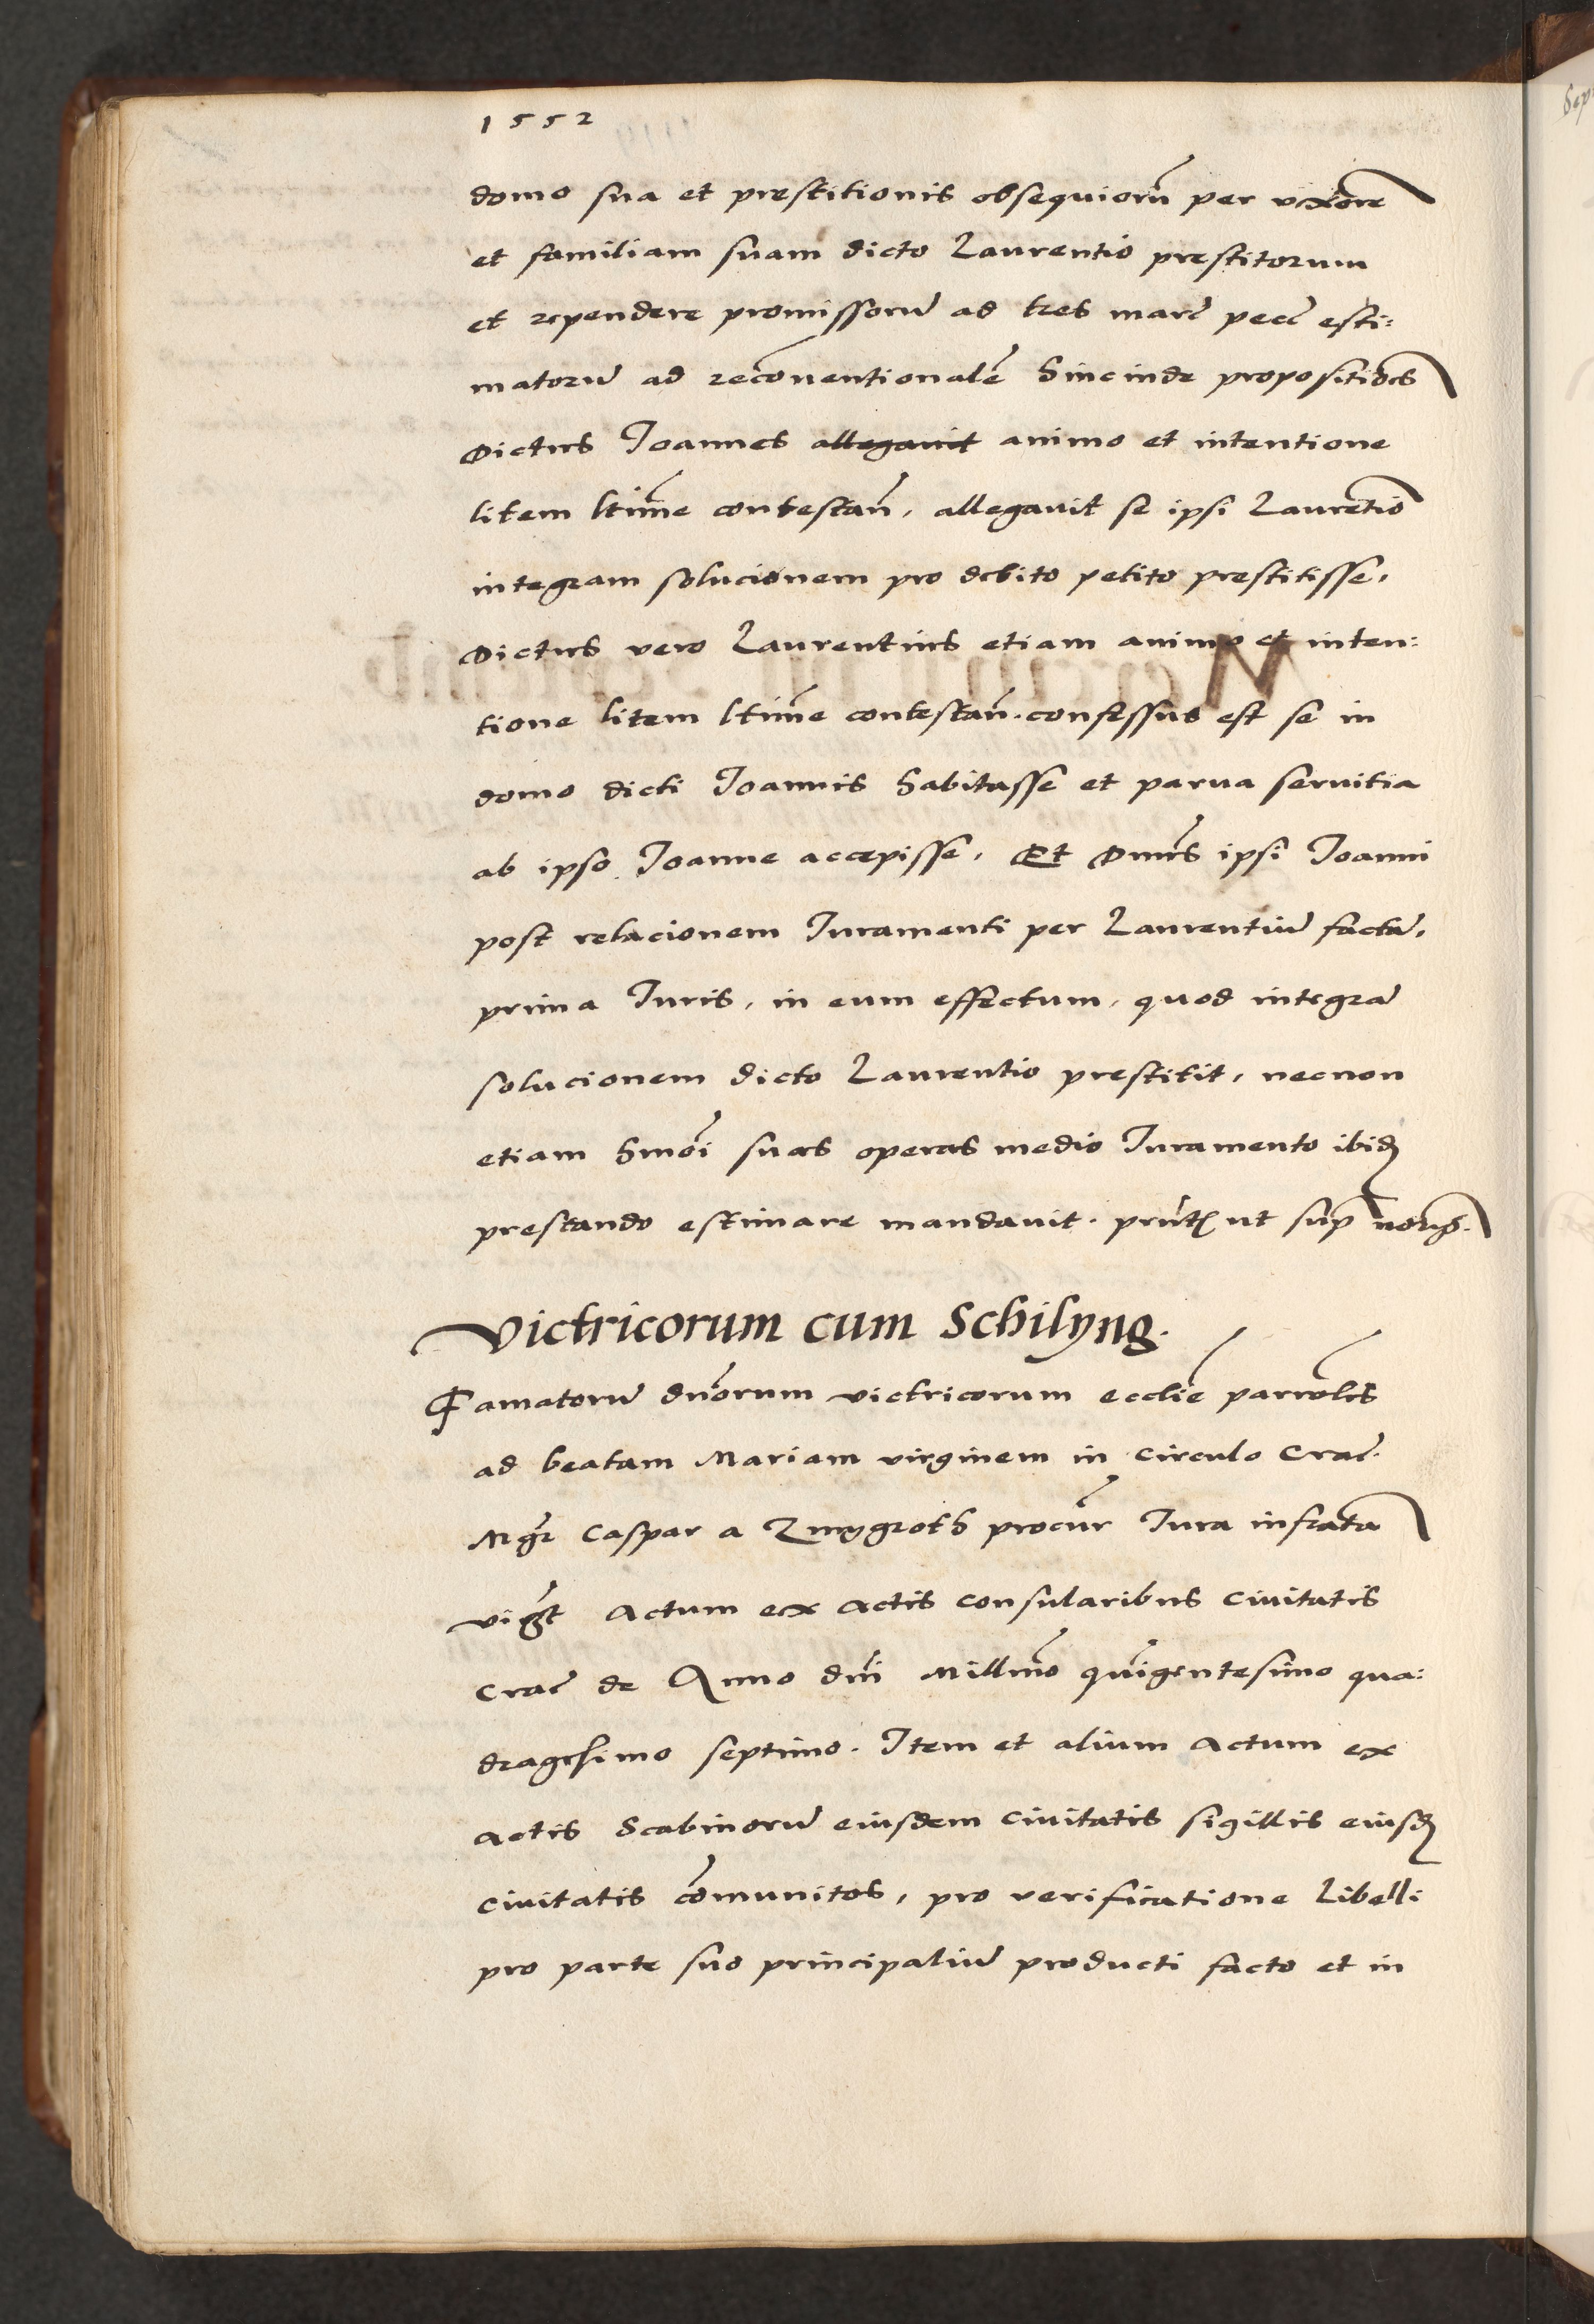 1552
domo sua et prestitionis obsequiorũ per uxorẽ
et familiam suam dicto Laurentio prestitorum
et rependere promissorũ ad tres marc̃ pec̃ esti:
matorũ ad reconventionalẽ hincinde propositiões
Dictus Joannes allegavit animo et intentione
litem ltim̃e contestañ, allegavit se ipsi Laurẽtio
integram solucionem pro debito petito prestitisse,
Dictus vero Laurentius etiam animo et inten:
tione litem ltim̃e contestañ. confessus est se in
domo dicti Joannis habitasse et parva servitia
ab ipso Joanne accepisse, Et Dnus̃ ipsi Joanni
post relacionem Juramenti per Laurentiũ factã,
prima Juris, in eum effectum, quod integrã
solucionem dicto Laurentio prestitit, necnon
etiam hmõi suas operas medio Juramento ibid
prestando estimare mandavit. pñtĩ ut sup̃
Victricorum cum Schilyng.
Famatorũ dñorum victricorum ecclie͂ parrolis͂
ad beatam Mariam virginem in circulo Crac̃.
Mgr̃ Caspar a Zmygroth procũr Jura infrãta
Actum ex Actis consularibus Civitatis
Crac̃ de Anno dñi Millimõ quĩgentesimo qua:
dragesimo septimo. Item et alium Actum ex
Actis Scabinorũ eiusdem Civitatis sigillis eiusd
civitatis cõmunitos, pro verificatione Libelli
pro parte suo principaliũ producti facto et in